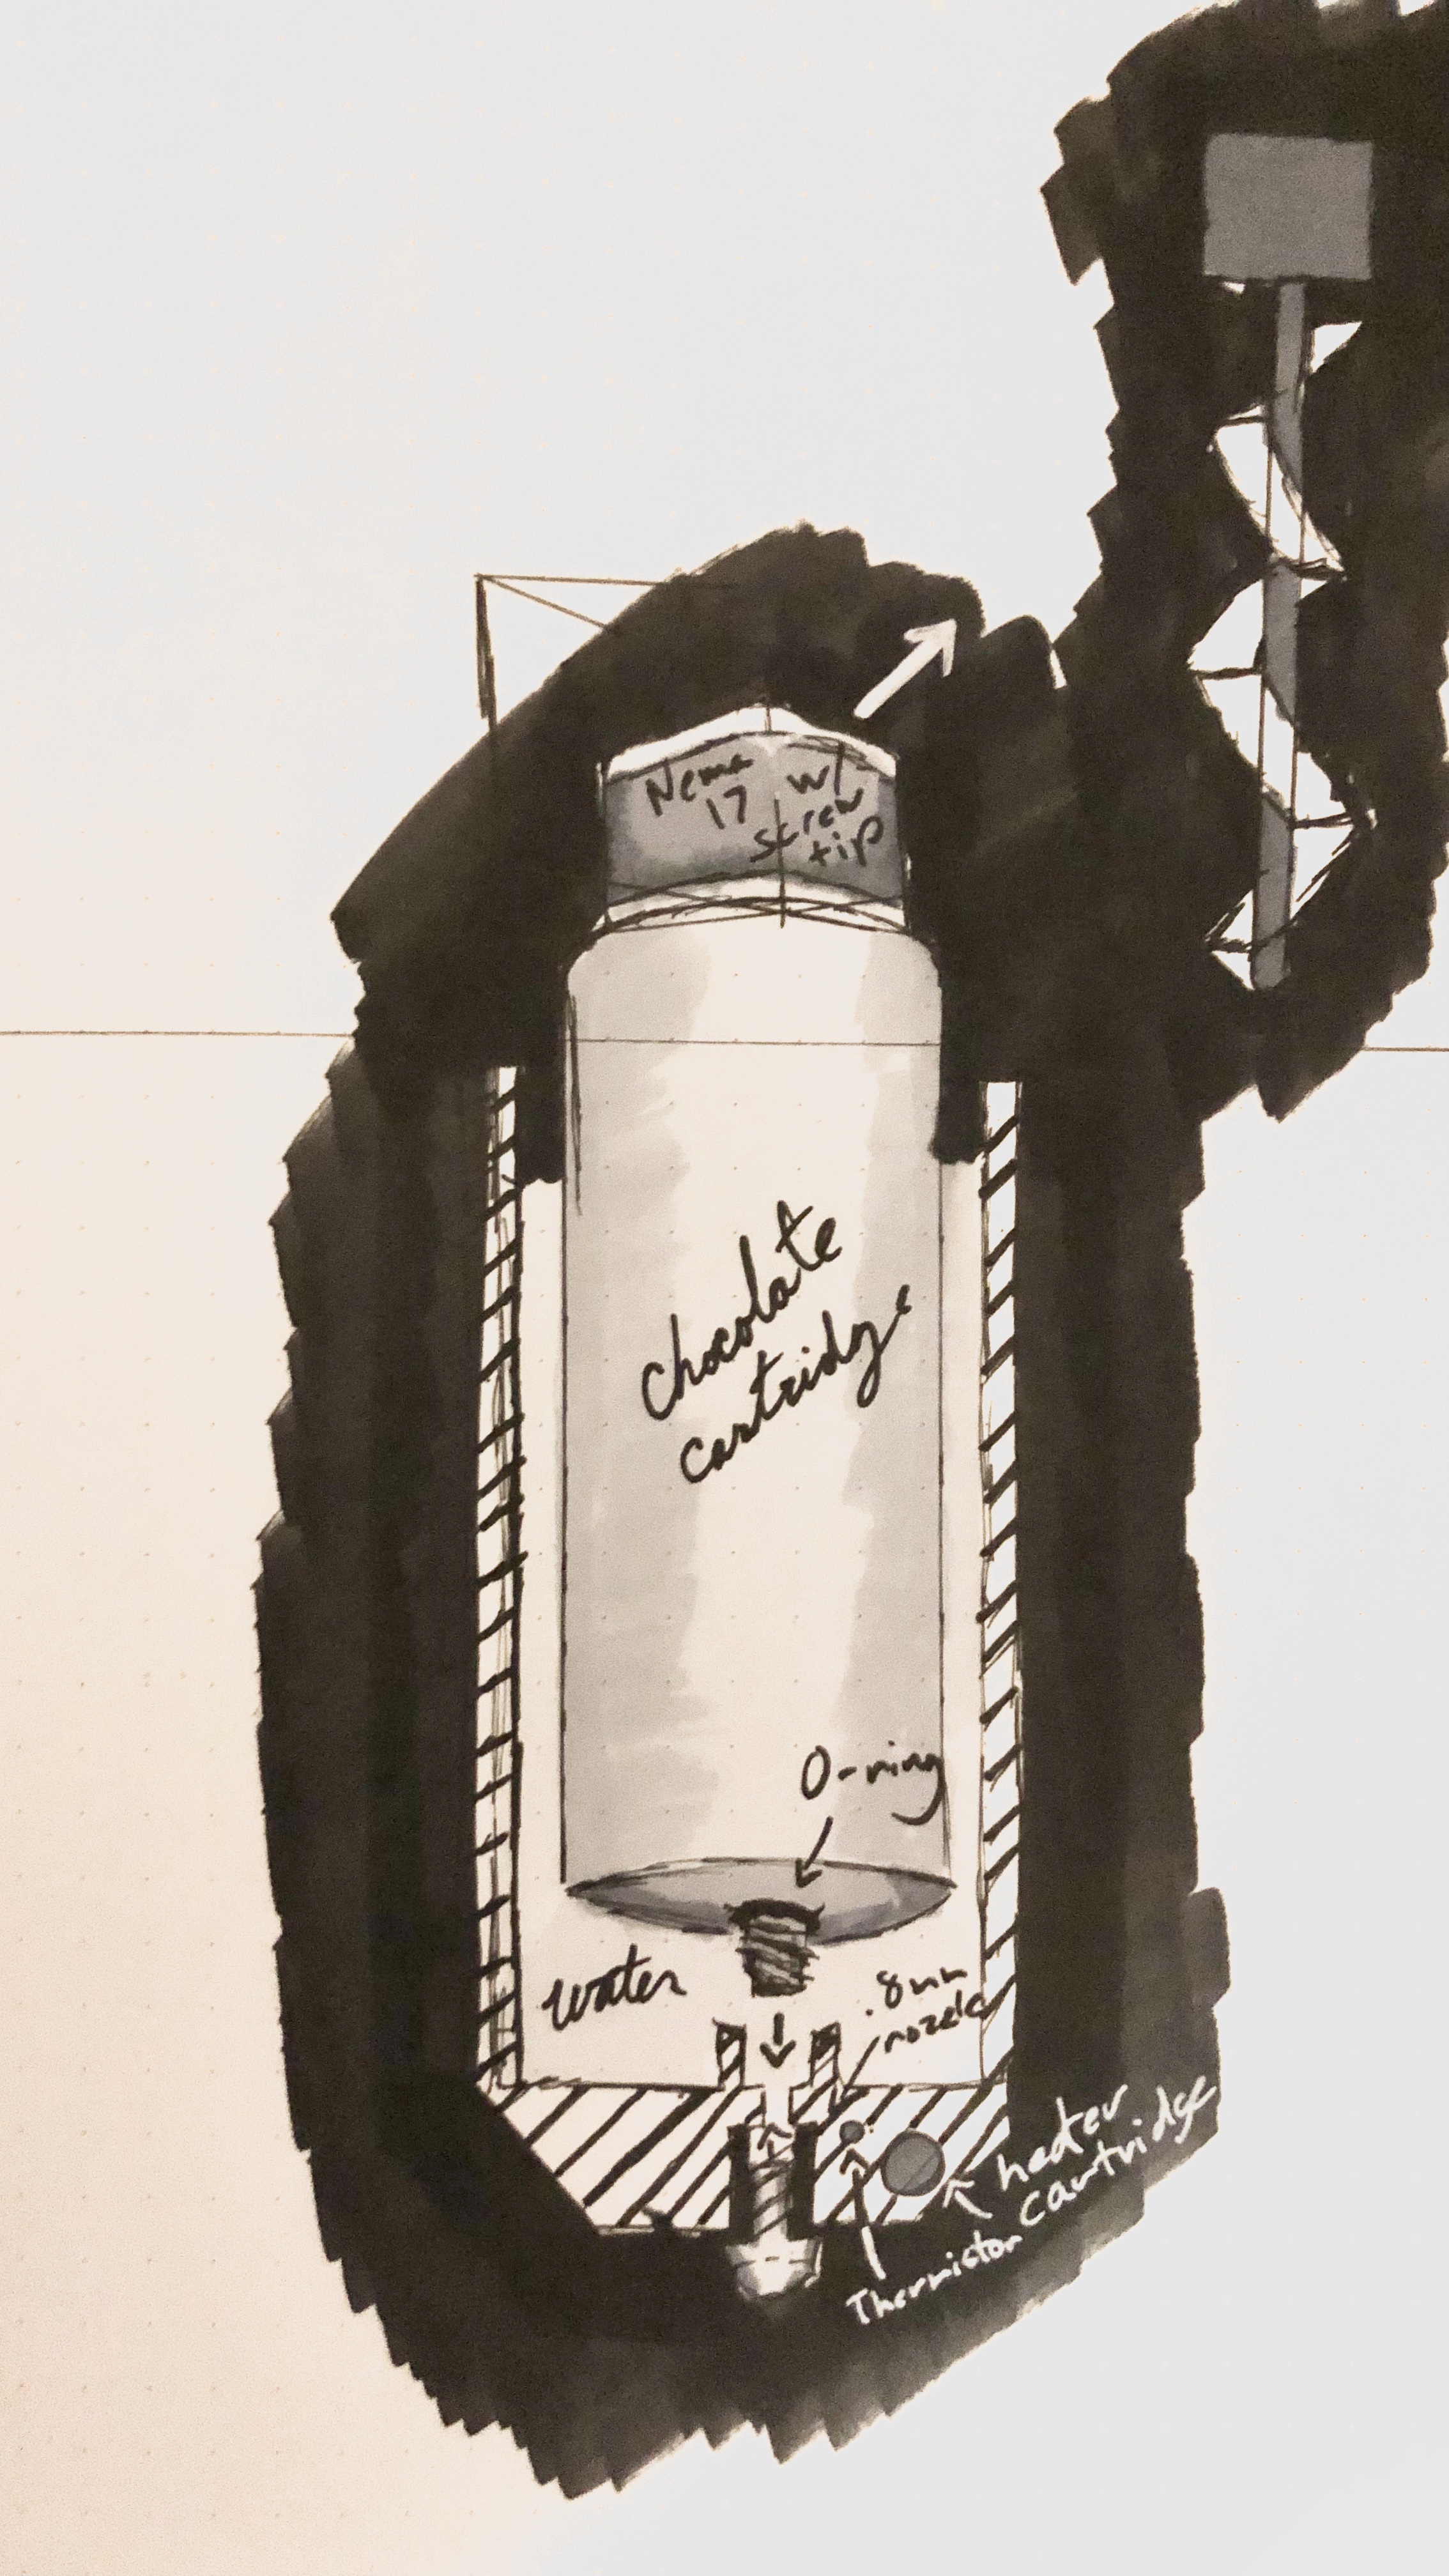 Nema
17
w/
screw
tip
chocolate
cartridge
O-ring
water
.8mm
nozzle
heater
cartridge
Thermistor